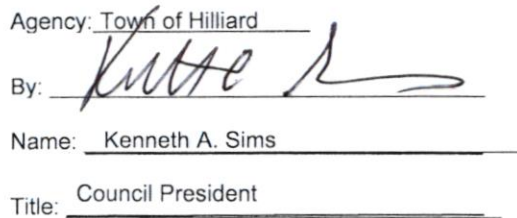 Agency: Town of Hilliard
By:
Name: Kenneth A. Sims
Title: Council President